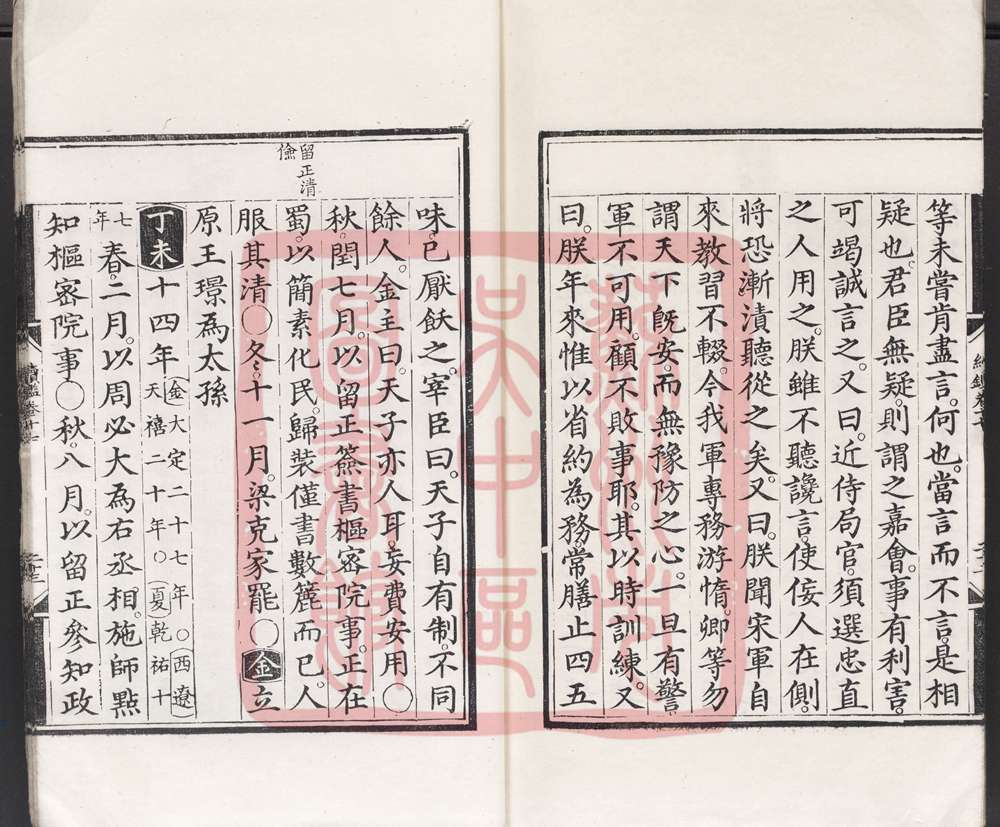 等未嘗肯盡言。何也。當言而不言。是相
疑也。君臣無疑。則謂之嘉會。事有利害。
可竭誠言之。又曰。近侍局官。須選忠直
之人用之。朕雖不聽讒言。使佞人在側。
將恐漸漬聽從之矣。又曰。朕聞宋軍自
來教習不輟。今我軍專務游惰。卿等勿
謂天下旣安。而無豫防之心。一旦有警。
軍不可用。顧不敗事耶。其以時訓練。又
曰。朕年來惟以省約為務常膳止四五
味。已厭飫之。宰臣曰。天子自有制。不同
餘人。金主曰。天子亦人耳。妄費安用〇
秋。閏七月。以留正簽書樞密院事。正在
蜀。以簡素化民。歸裝僅書數簏而已。人
服其清〇冬。十一月。梁克家罷〇金立
留正清
儉
原王璟爲太孫
丁未十四年金大定二十七年〇西遼
天禧二十年〇夏乾祐十
七年春。二月。以周必大爲右丞相。施師點
知樞密院事〇秋。八月。以留正參知政